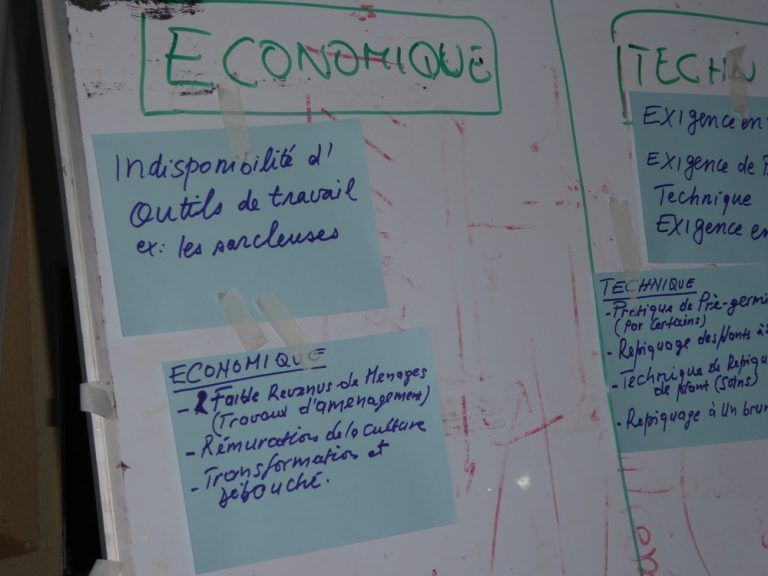 ECONOMIQUE
Indisponibilité d'
Outils de travail
ex: les sarcleuses
ECONOMIQUE
- Faible Revenus de Menages
(Travaux d'amenagement)
- Rémuration de la culture
- Transformation et
Débouché.
TECHN
EXIgence en
EXIgence de
Technique
EXIgence en
TECHNIQUE
- Pratique de Pré-germi
(Par Certains)
- Repiquage des plants à
- Technique de Repiqu
de plant (Soins)
- Repiquage à Un brun